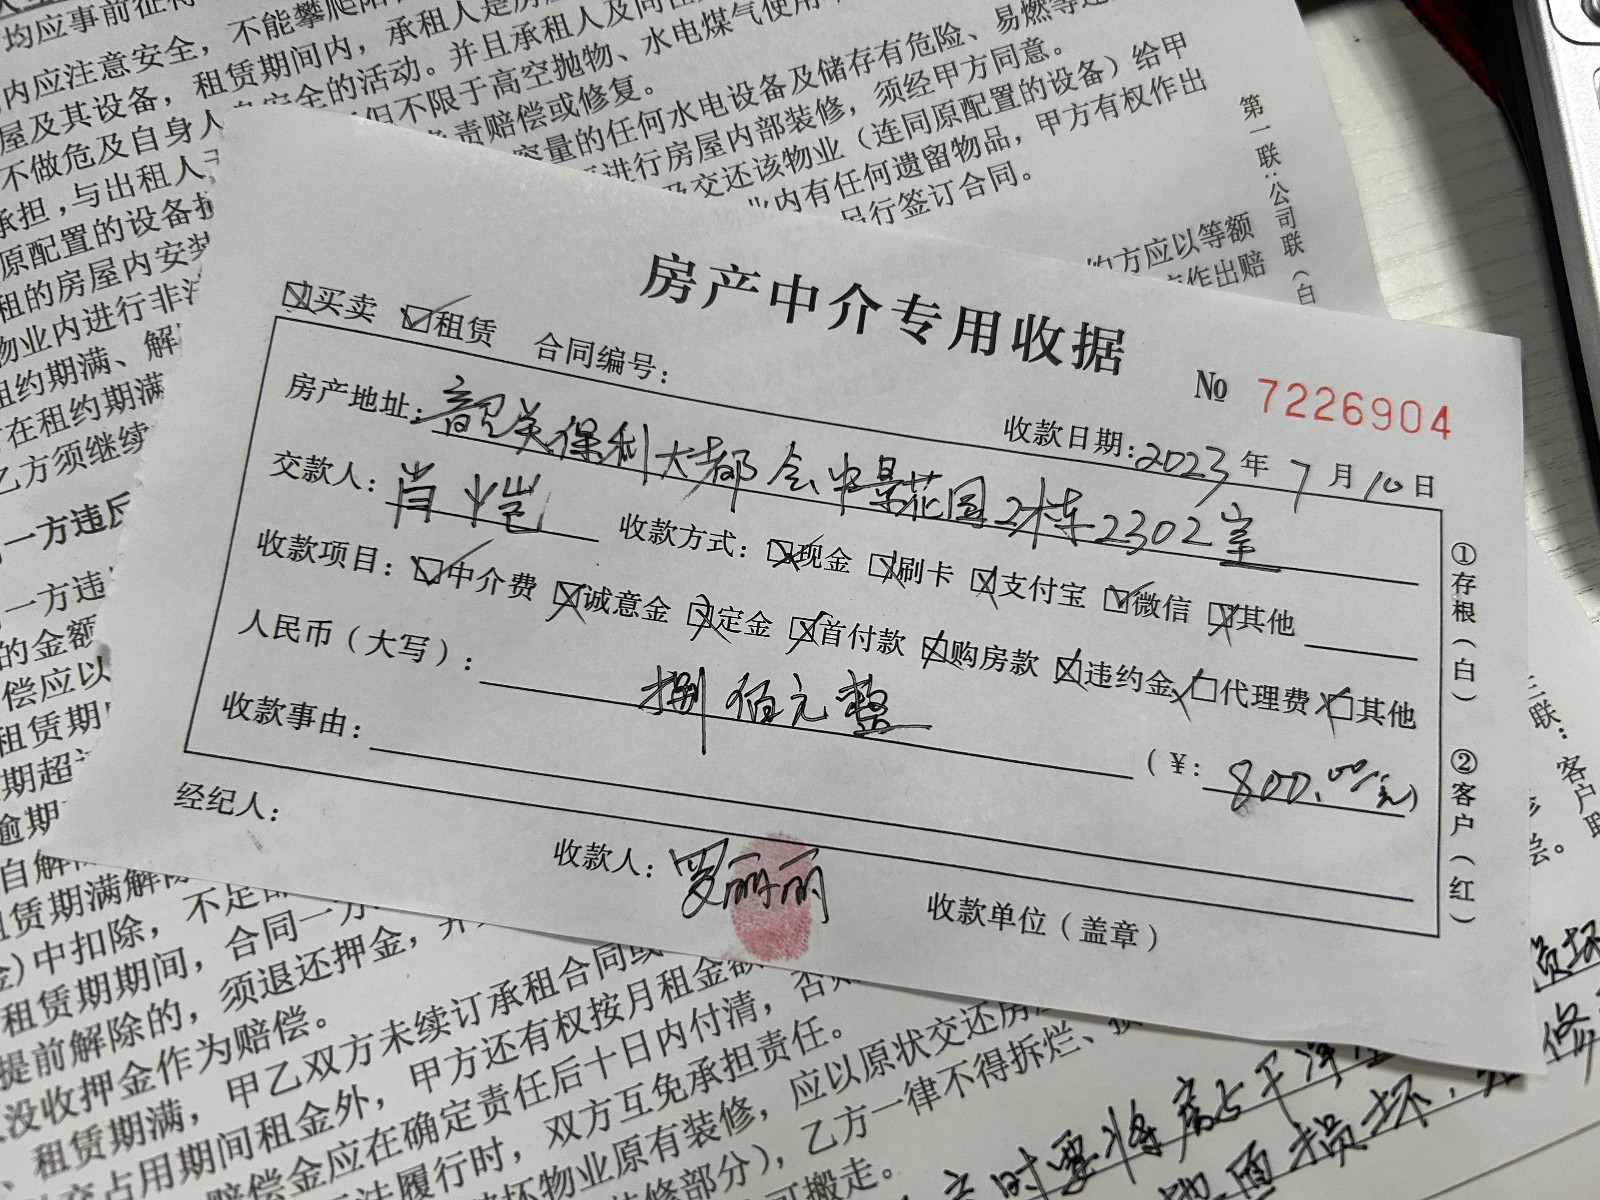 均应事前征得
内应注意安全，不能攀爬阳
屋及其设备，租赁期间内，承租人是房屋
不做危及自身人身安全的活动。并且承租人及同住
承担，与出租人 但不限于高空抛物、水电煤气使用
原配置的设备 负责赔偿或修复。
租的房屋内安装 容量的任何水电设备及储存有危险、易燃等
物业内进行非法 进行房屋内部装修，须经甲方同意。
租约期满、解 交还该物业（连同原配置的设备）给甲
在租约期满 业内有任何遗留物品，甲方有权作出
乙方须继续 另行签订合同。
的方应以等额
作出赔
第一联：公司联（白
一方违反
一方违
的金额
偿应以
租赁期
期超
逾期
房产中介专用收据
☒买卖 ☑租赁 合同编号：
№ 7226904
收款日期：2023年7月10日
房产地址：韶关保利大都会中景花园2栋2302室
交款人：肖恺 收款方式：☒现金 ☒刷卡 ☒支付宝 ☑微信 ☒其他
收款项目：☑中介费 ☒诚意金 ☒定金 ☒首付款 ☒购房款 ☒违约金 ☒代理费 ☒其他
人民币（大写）：捌佰元整 （¥：800.00元）
收款事由：
经纪人： 收款人：罗丽丽 收款单位（盖章）
①存根（白） ②客户（红）
三联：客户联
自解除
租赁期满解除
金）中扣除，不足部
租赁期期间，合同一方
提前解除的，须退还押金，并
没收押金作为赔偿。
租赁期满，甲乙双方未续订承租合同或
交占用期间租金外，甲方还有权按月租金额
赔偿金应在确定责任后十日内付清，否则
法履行时，双方互免承担责任。
坏物业原有装修，应以原状交还房
装修部分），乙方一律不得拆烂、
可搬走。
损坏
时要将房与干净
损坏，
修